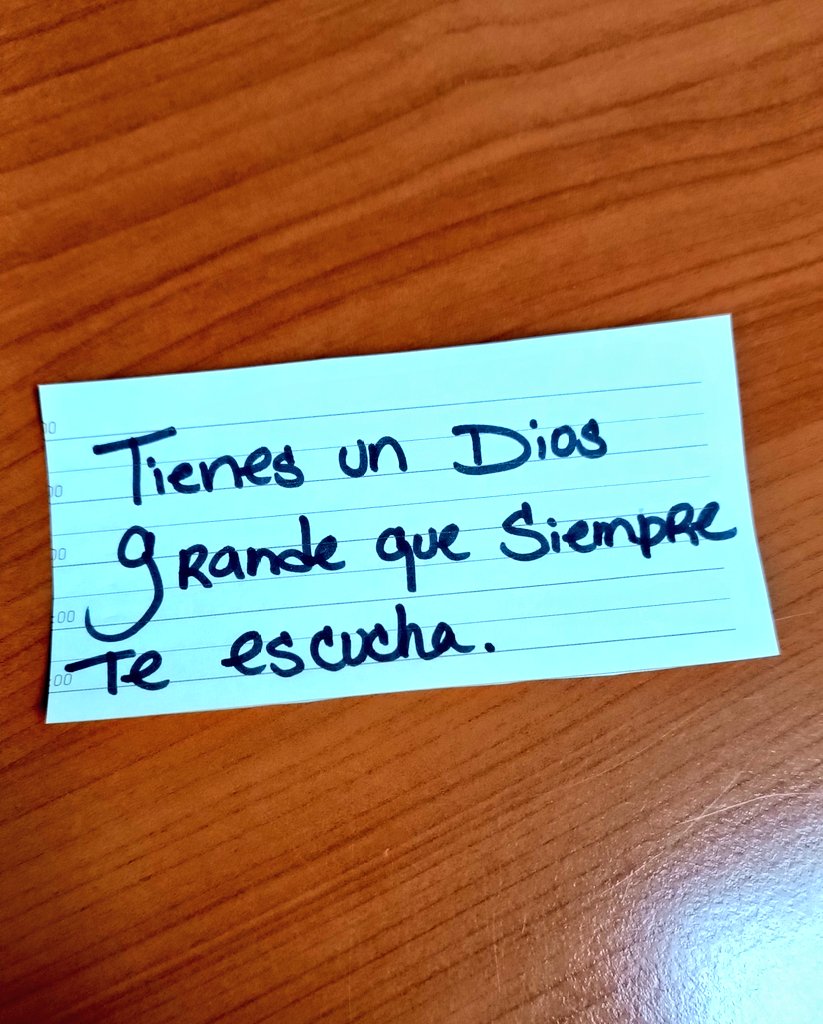 Tienes un Dios
grande que Siempre
Te escucha.